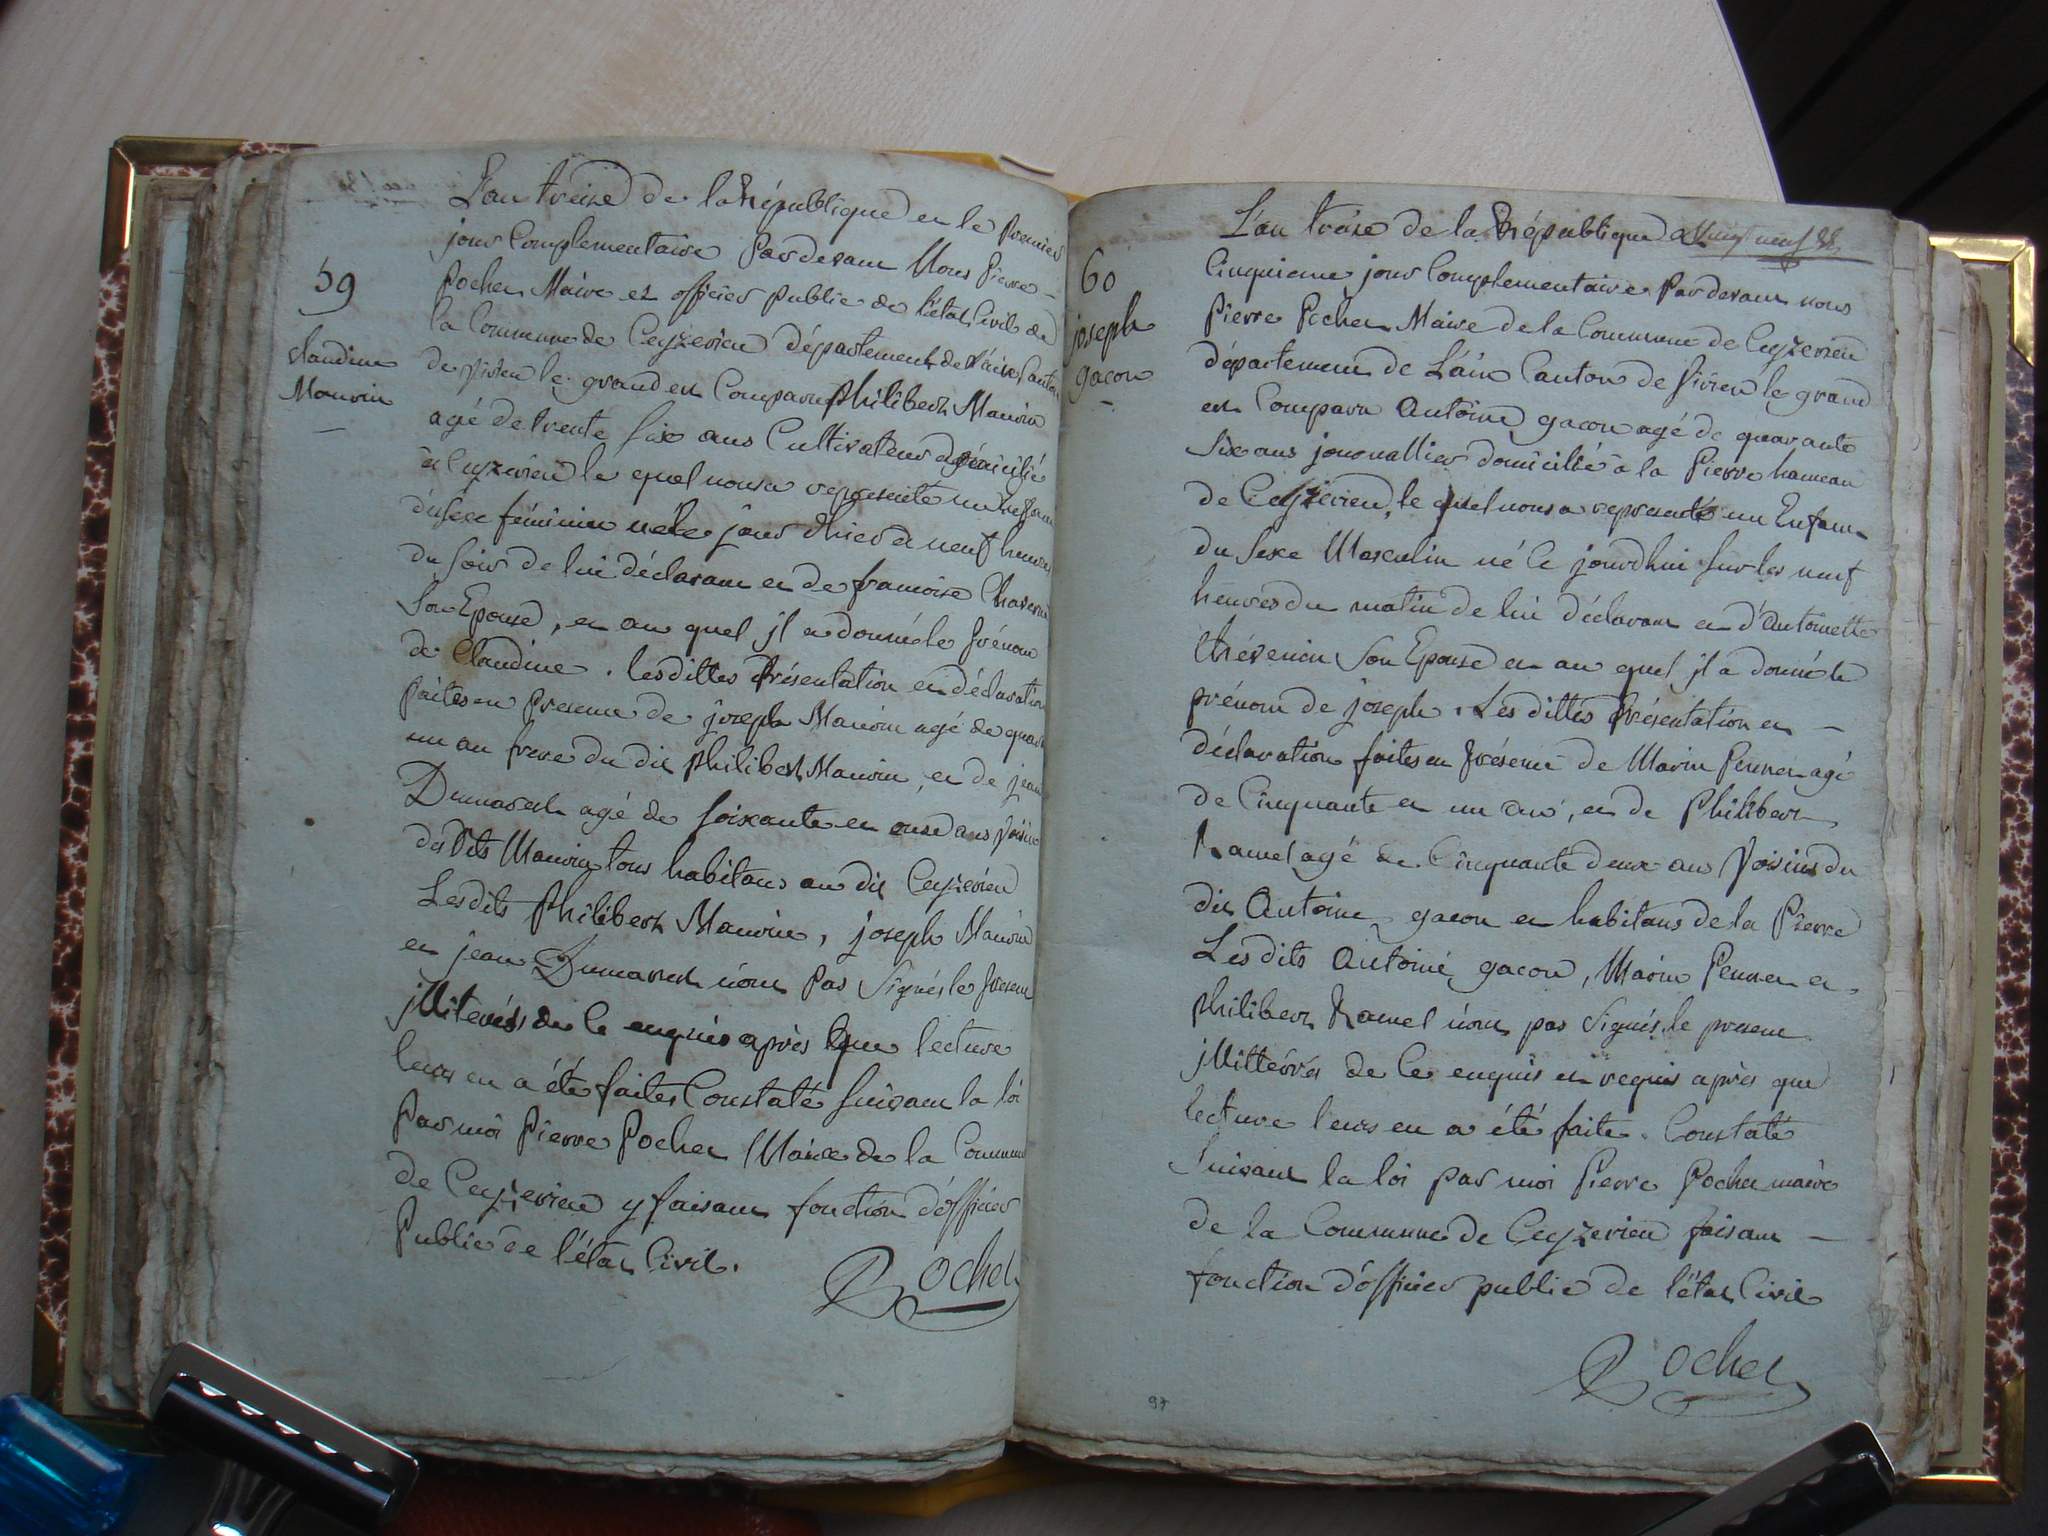 59
Claudine
Mauvin
L'an treize de la République et le Premier
jour Complementaire Pardevant Nous Pierre
Pochet Maire et officier public de l'état Civil de
la Commune de Ceyzerieu département de l'ain Canton
de Virieu le grand est Comparu philibert Mauvin
agé de trente six ans Cultivateur domicilié
à Ceyzerieu le quel nous a representé un Enfant
du sexe féminin né le jour d'hier à neuf heures
du soir de lui déclarant et de francoise
Son Epouse, et au quel jl a donné le prénom
de Claudine. lesdittes Présentation et déclaration
faites en Presence de joseph Mauvin agé de
un an frere du dit philibert Mauvin, et de jean
Dumarest agé de soixante et onze ans Voisin
des dits Mauvin tous habitans au dit Ceyzerieu
Les dits philibert Mauvin, joseph Mauvin
et jean Dumarest n'ont pas Signés le present
jlliterés de ce enquis après que lecture
leurs en a été faites Constaté suivant la loi
Par moi Pierre Pochet Maire de la Commune
de Ceyzerieu y faisant fonction d'officier
Public de l'état Civil.
Pochet
60
joseph
gacon
L'an treise de la République
Cinquieme jour Complementaire Pardevant nous
Pierre Pochet Maire de la Commune de Ceyzerieu
département de L'ain Canton de Virieu le grand
est Comparu Antoine gacon agé de quarante
Six ans jouonallier domicilié à la Pierre hameau
de Ceyzerieu, le quel nous a representé un Enfant
du Sexe Masculin né ce jourdhui sur les neuf
heures du matin de lui déclarant et d'Antoinette
Thévenin Son Epouse et au quel jl a donné le
prénom de joseph. Les dittes Présentation et —
déclaration faites en présence de Marin Perret agé
de Cinquante et un ans, et de Philibert
Ramel agé de Cinquante deux ans Voisins du
dit Antoine gacon et habitans de la Pierre
Les dits Antoine gacon, Marin Perret et
philibert Ramel n'ont pas Signés le present
jllitterés de ce enquis et requis après que
lecture leurs en a été faite. Constaté
Suivant la loi par moi Pierre Pochet maire
de la Commune de Ceyzerieu faisant —
fonction d'officier public de l'état Civil
Pochet
97